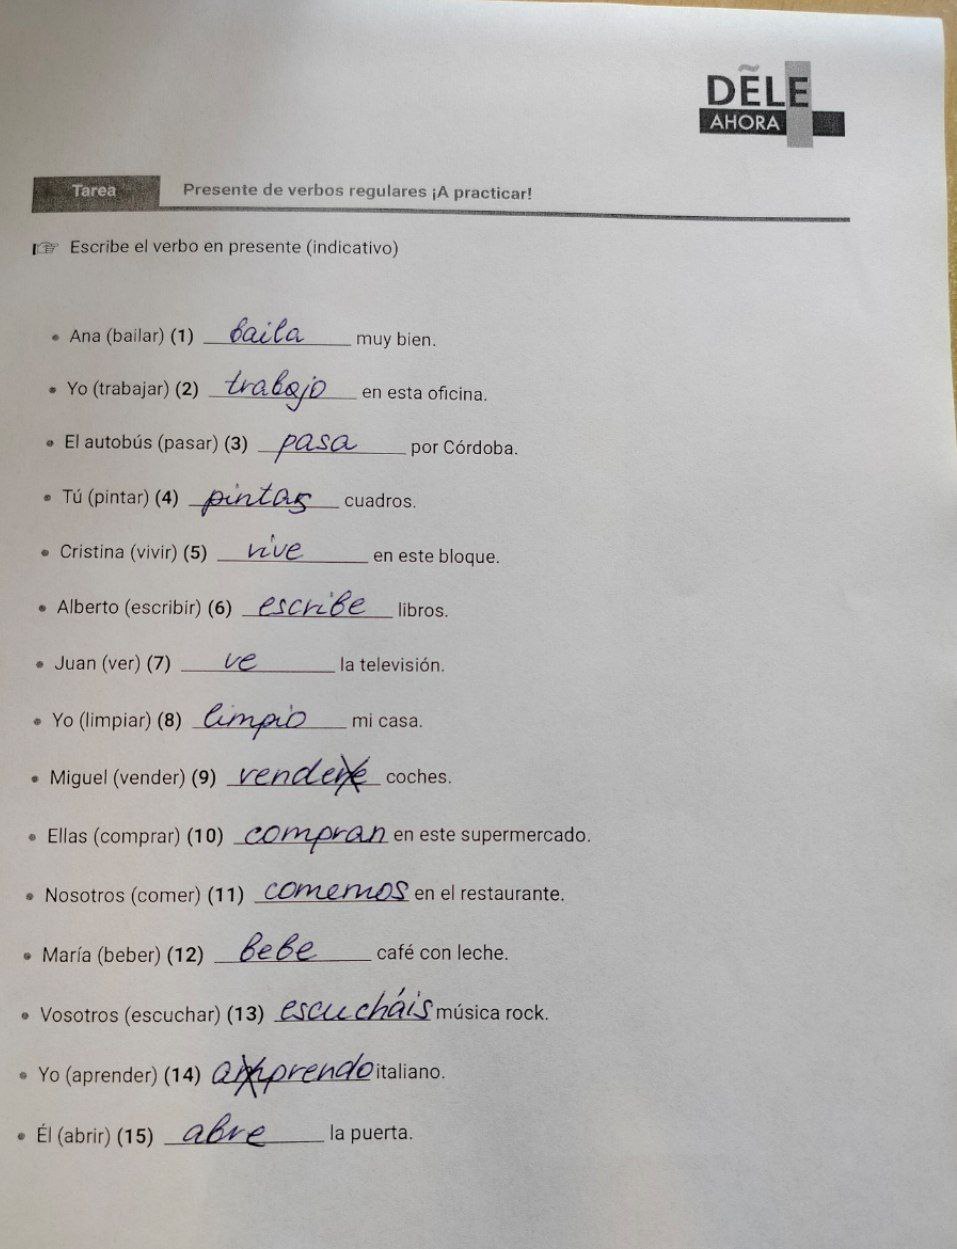 DELE
AHORA
Tarea Presente de verbos regulares ¡A practicar!
Escribe el verbo en presente (indicativo)
• Ana (bailar) (1) baila muy bien.
• Yo (trabajar) (2) trabajo en esta oficina.
• El autobús (pasar) (3) pasa por Córdoba.
• Tú (pintar) (4) pintas cuadros.
• Cristina (vivir) (5) vive en este bloque.
• Alberto (escribir) (6) escribe libros.
• Juan (ver) (7) ve la televisión.
• Yo (limpiar) (8) limpio mi casa.
• Miguel (vender) (9) vende coches.
• Ellas (comprar) (10) compran en este supermercado.
• Nosotros (comer) (11) comemos en el restaurante.
• María (beber) (12) bebe café con leche.
• Vosotros (escuchar) (13) escucháis música rock.
• Yo (aprender) (14) aprendo italiano.
• Él (abrir) (15) abre la puerta.